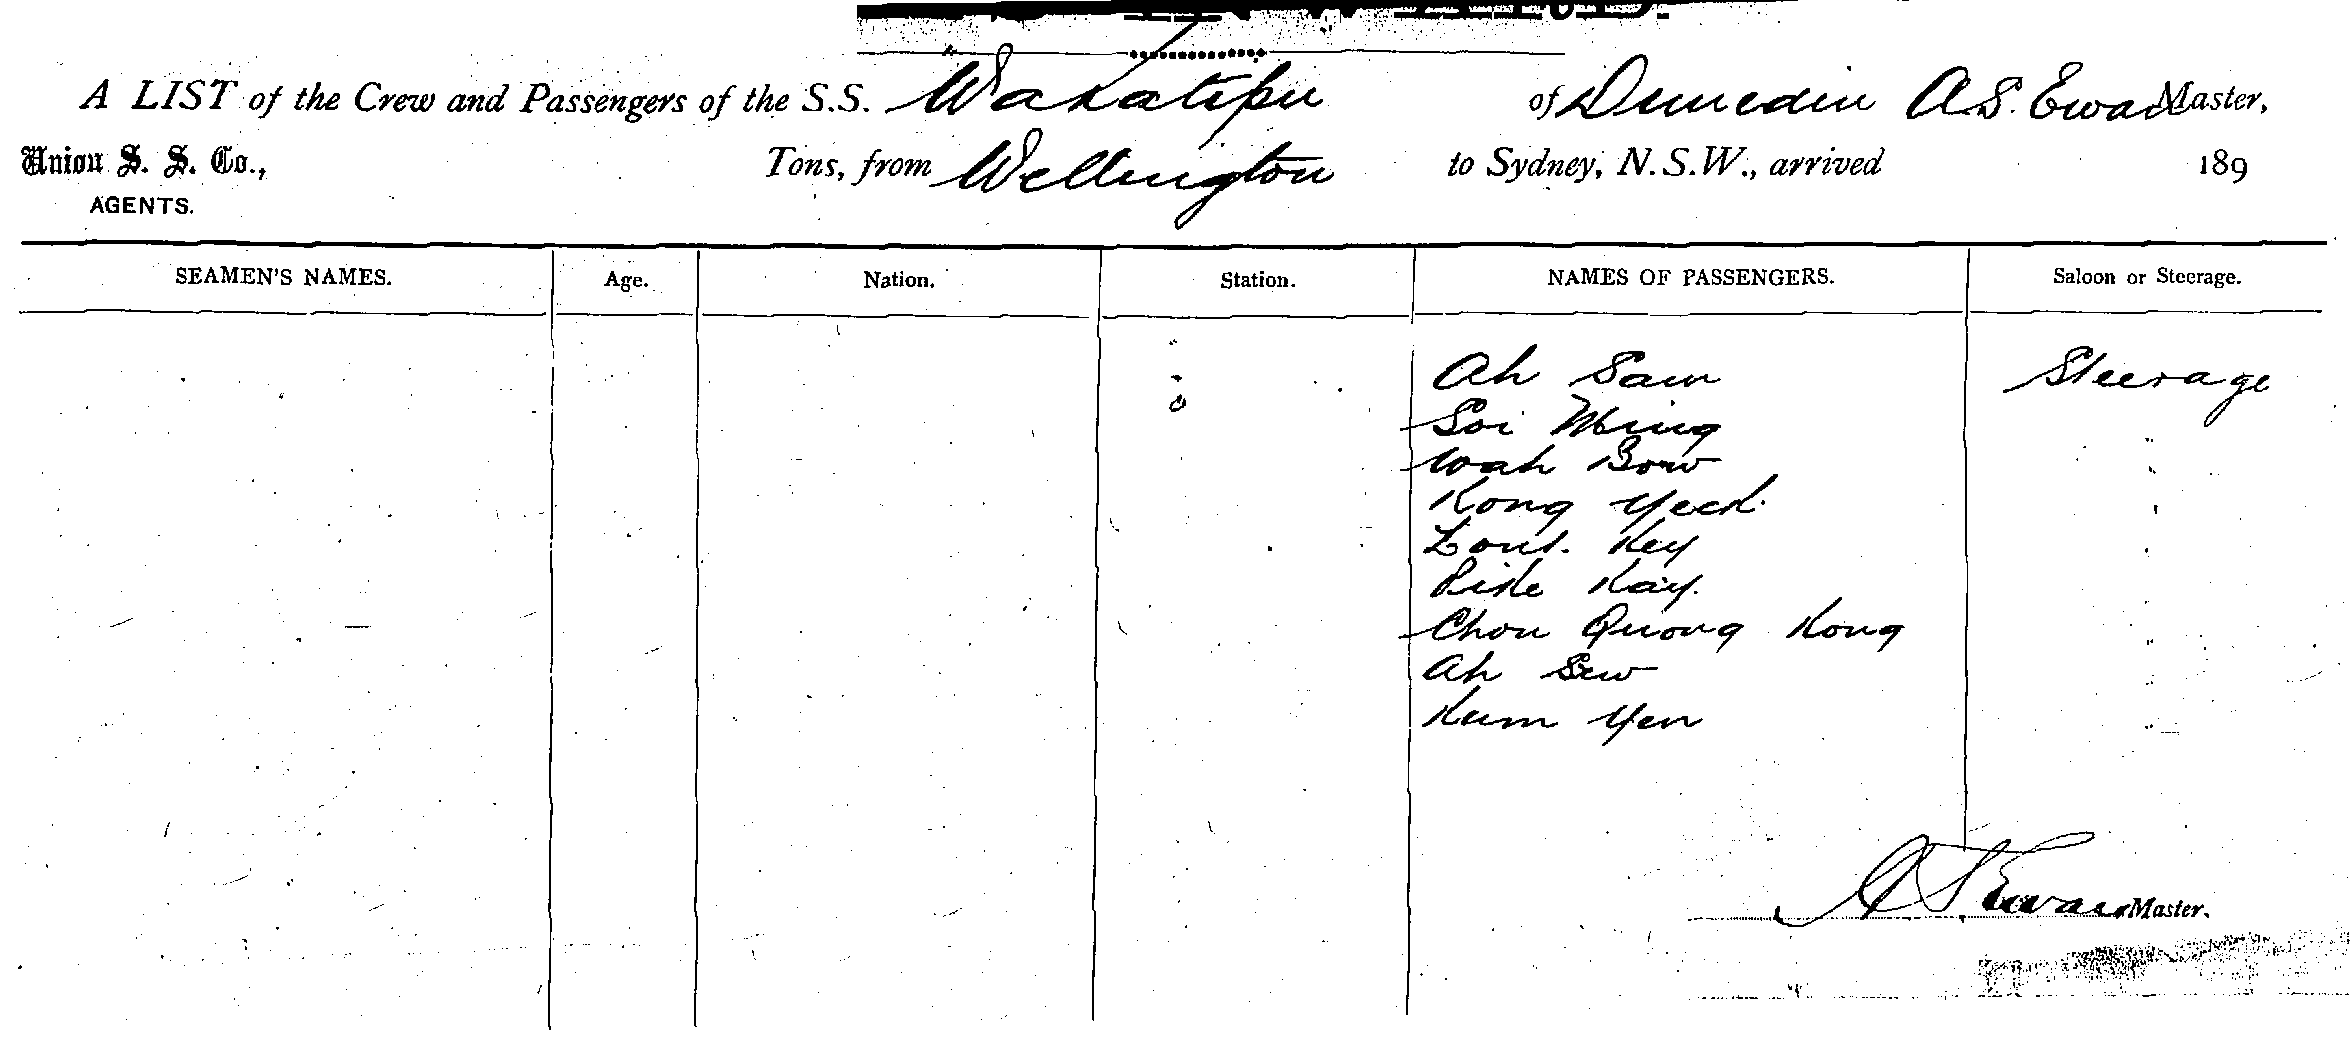 A LIST of the Crew and Passengers of the S.S. Wakatipu of Dunedin A S. Ewan Master,
Union S. S. Co., Tons, from Wellington to Sydney, N.S.W., arrived 189
AGENTS.
SEAMEN'S NAMES. Age. Nation. Station. NAMES OF PASSENGERS. Saloon or Steerage.
Ah Sam Steerage
Soi Ming "
Wah Bow "
Kong Yeck "
Kay
Chou Quong Kong "
Ah Sew
Kum Yen "
A S Ewan Master.